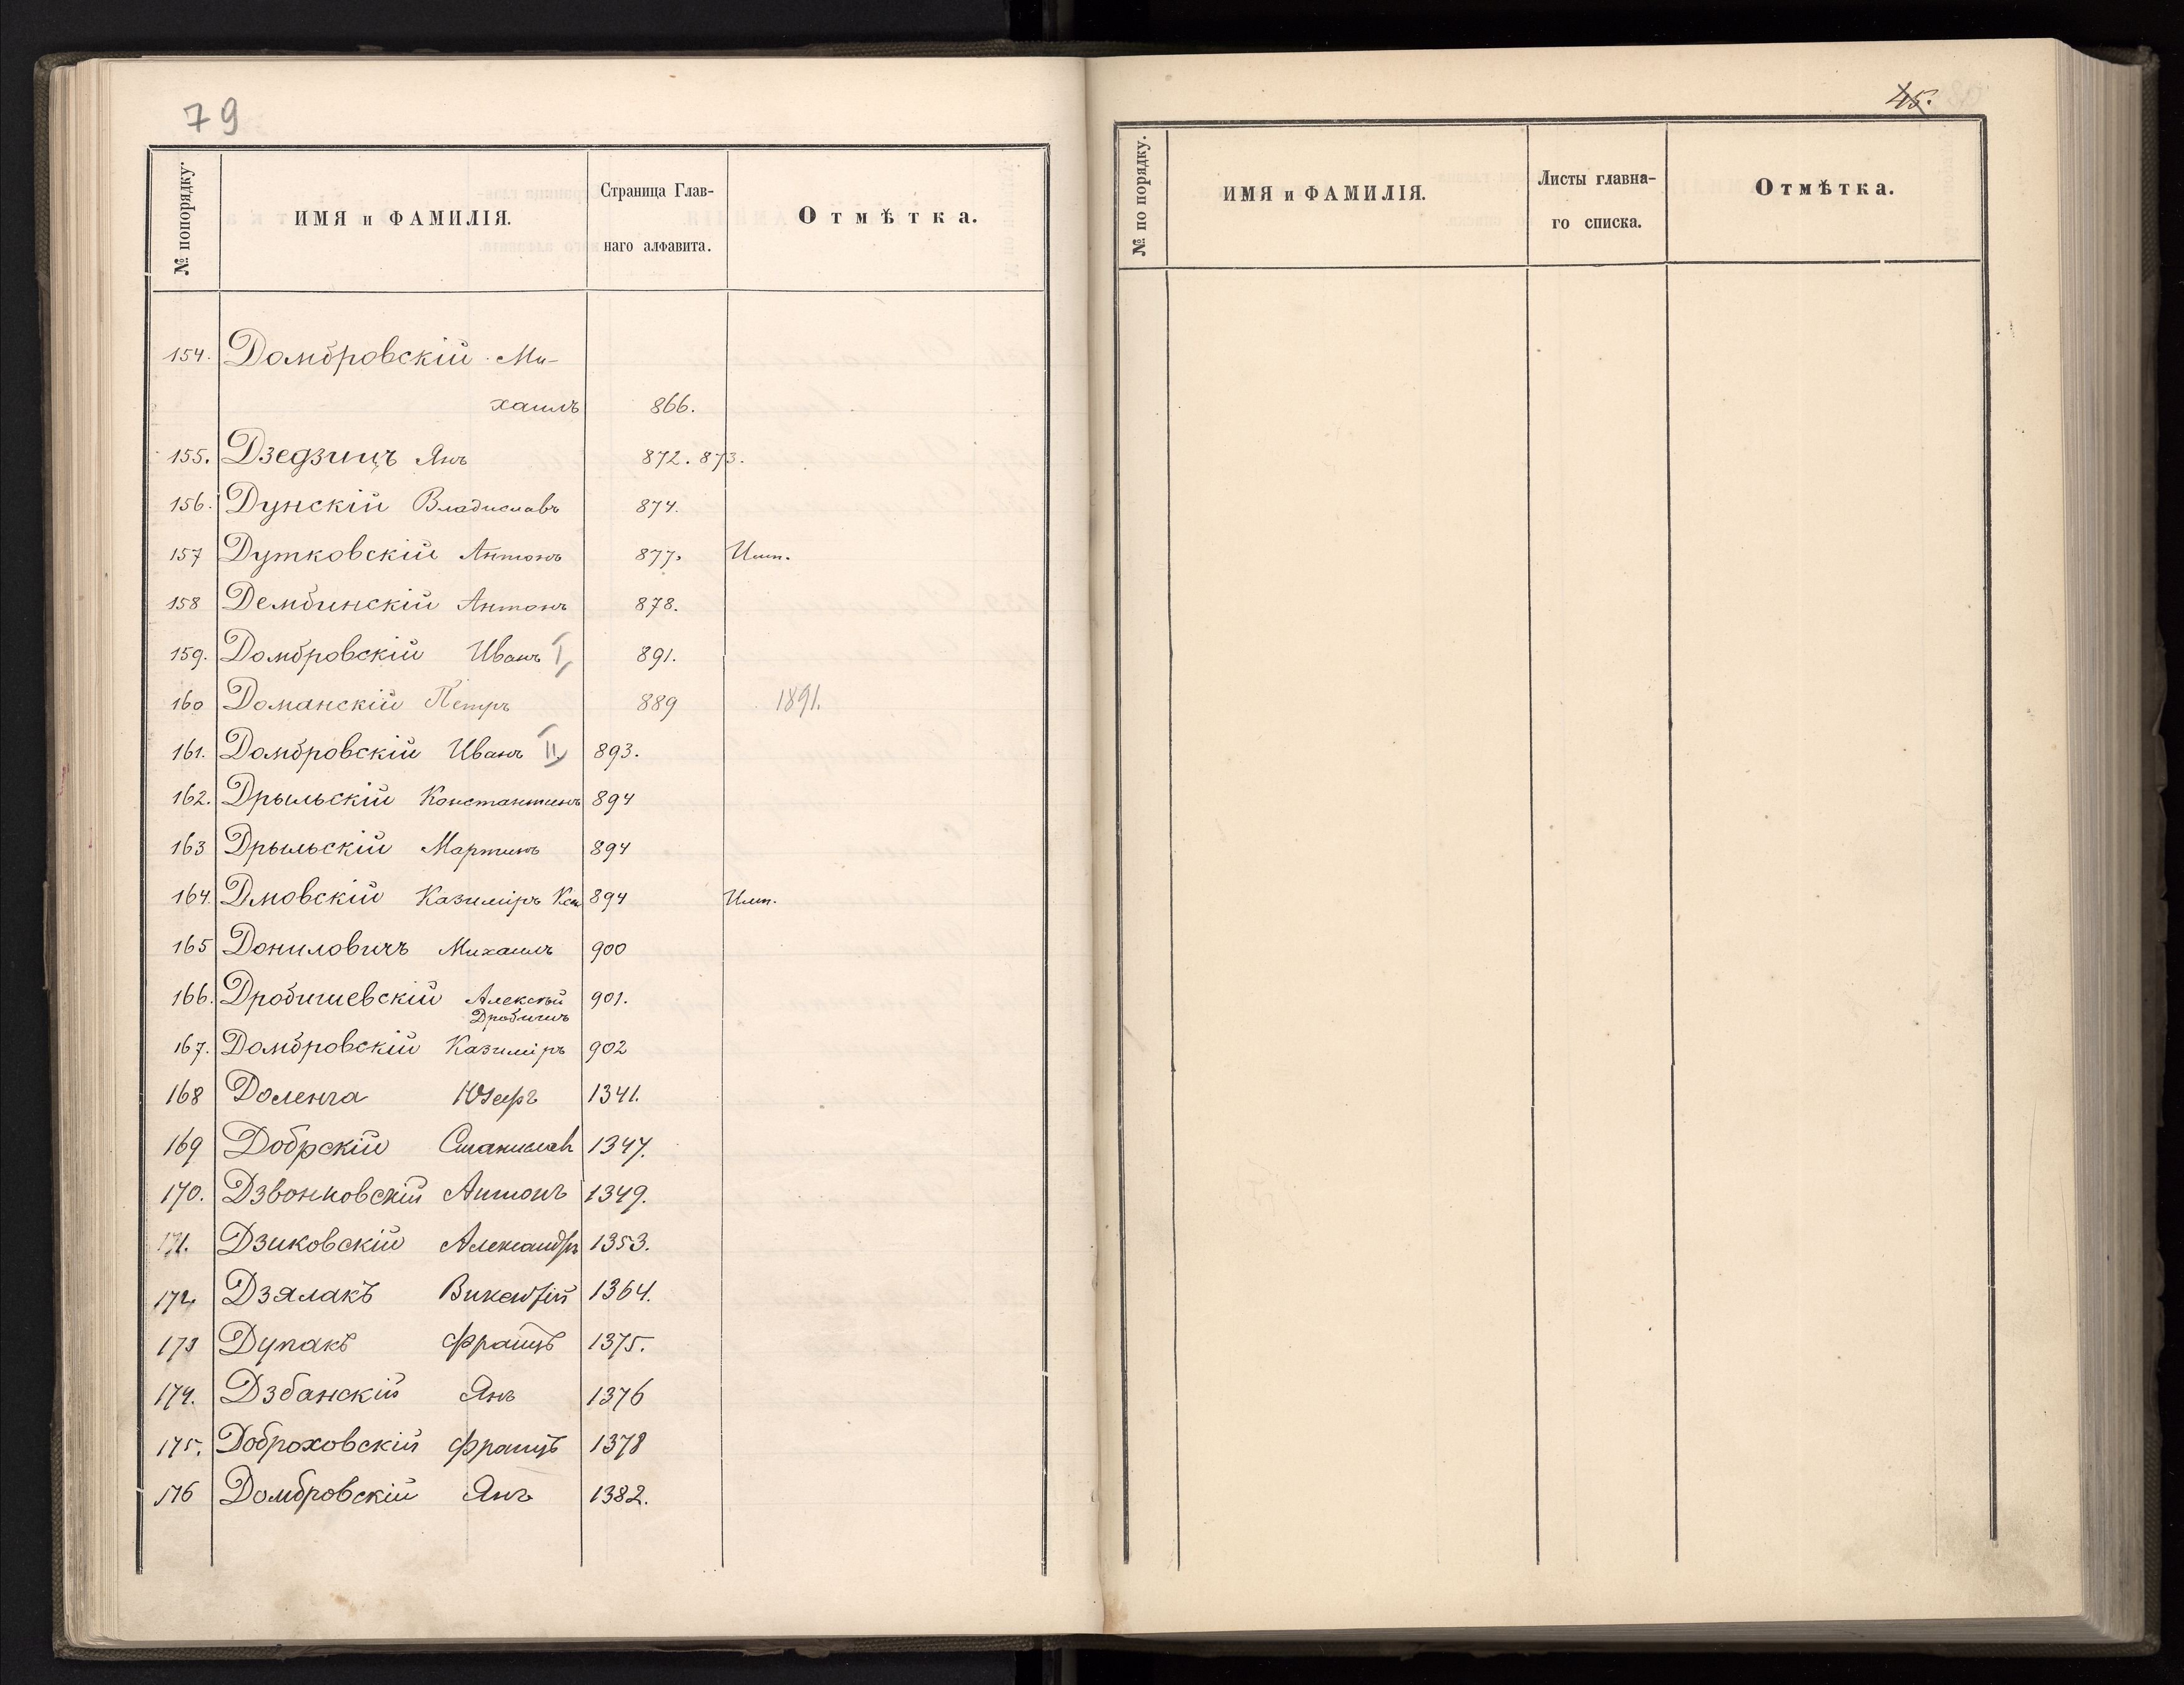 79
№ попорядку.
ИМЯ и ФАМИЛІЯ.
Страница Глав-
наго алфавита.
Отмѣтка.
154. Домбровскій Ми-
хаилъ 866.
155. Дзедзицъ Янъ 872. 873.
156. Дунскій Владиславъ 874.
157 Дутковскій Антонъ 877.
158 Дембинскій Антонъ 878.
159. Домбровскій Иванъ I 891.
160 Доманскій Петръ 889 1891.
161. Домбровскій Иванъ II 893.
162. Дрыльскій Константинъ 894
163 Дрыльскій Мартинъ 894
164. Дмовскій Казиміръ 894
165 Дониловичъ Михаилъ 900
166. Дробишевскій Алексѣй 901.
Дробишъ
167. Домбровскій Казиміръ 902
168 Доленга Юзефъ 1341.
169 Добрскій Станиславъ 1347.
170. Дзвонковскій Антонъ 1349.
171. Дзиковскій Александръ 1353.
172 Дзялакъ Викентій 1364.
173 Дупакъ Францъ 1375.
174. Дзбанскій Янъ 1376
175. Доброховскій Францъ 1378
176 Домбровскій Янъ 1382.
45.
№ по порядку.
ИМЯ и ФАМИЛІЯ.
Листы главна-
го списка.
Отмѣтка.